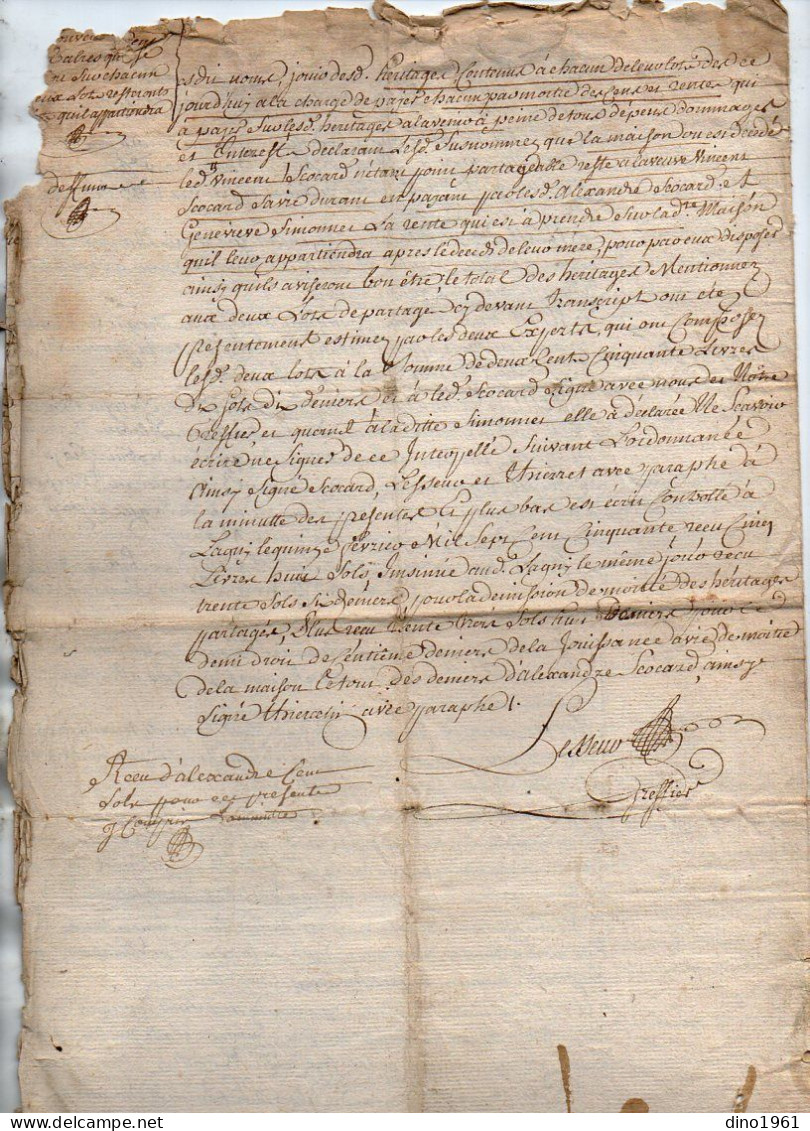 qu'il appartiendra
deffunt
esdit noms, jouir desd. heritages Contenus à chacun de leur lots dès ce
jourd'huy a la charge de payer chacun par moitié des Cens et rentes qui
à payer sur lesd. heritages a lavenir à peine de tous dépens dommages
et Interest declarant lesd. susnommez que la maison ou est decedé
led. Vincent Scocard n'étant point partageable reste a la veuve Vincent
Scocard sa vie durant en payant par lesd. Alexandre Scocard et
Genevieve Simonnet La rente qui est à prendre sur lad.te Maison
qu'il leur appartiendra apres le deced de leur mere, pour par eux disposer
ainsi qu'ils aviseront bon être le total des heritages Mentionnez
aux deux Lots de partage cy devant transcript ont eté
presentement estimez par les deux Experts, qui ont Composez
lesd. deux lots à la Somme de deux Cents Cinquante Livres
dix sols dix deniers et à led. Scocard signé avec nous et Notre
Greffier et quand à la ditte Simonnet elle a déclarée Ne Scavoir
écrire ne signer de ce Interpellé suivant L'ordonnance
Ainsy signé Scocard, Lesseur et Thierret avec paraphe à
la minutte des presentes Et plus bas est écrit Controllé à
Lagny le quinze fevrier Mil Sept Cent Cinquante recu Cinq
Livres huit sols insinué aud. Lagny le même jour recu
trente sols six deniers, pour la demission de moitié des héritages
partagés, Plus recu trente trois sols huit deniers pour le
demi droit de Centième deniers de la Jouissance a vie de moitié
de la maison Le tout des deniers d'alexandre Scocard, ainsy
signé avec paraphe.
Lesseur
Greffier
Receu d'alexandre Cent
sols pour ces presente